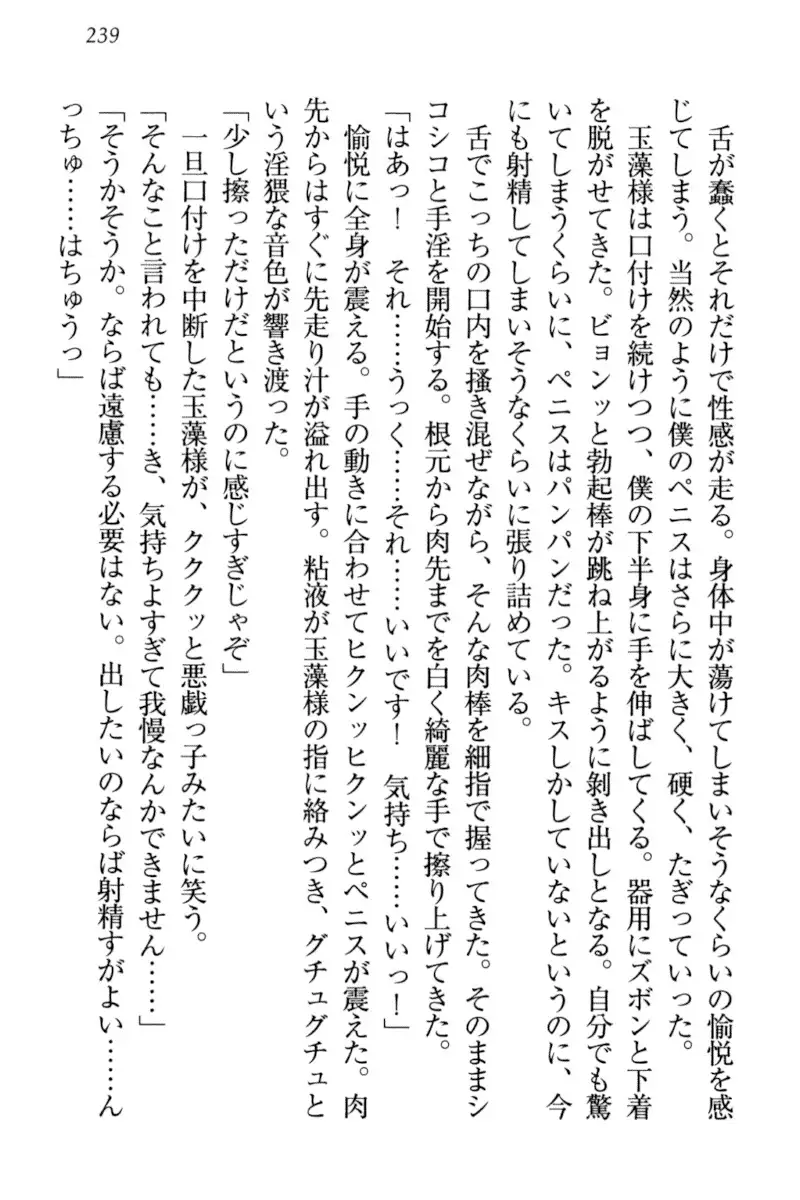 239
舌が蠢くとそれだけで性感が走る。身体中が蕩けてしまいそうなくらいの愉悦を感
じてしまう。当然のように僕のペニスはさらに大きく、硬く、たぎっていった。
玉藻様は口付けを続けつつ、僕の下半身に手を伸ばしてくる。器用にズボンと下着
を脱がせてきた。ビョンッと勃起棒が跳ね上がるように剝き出しとなる。自分でも驚
いてしまうくらいに、ペニスはパンパンだった。キスしかしていないというのに、今
にも射精してしまいそうなくらいに張り詰めている。
舌でこっちの口内を掻き混ぜながら、そんな肉棒を細指で握ってきた。そのままシ
コシコと手淫を開始する。根元から肉先までを白く綺麗な手で擦り上げてきた。
「はあっ！　それ……うっく……それ……いいです！　気持ち……いいっ！」
愉悦に全身が震える。手の動きに合わせてヒクンッヒクンッとペニスが震えた。肉
先からはすぐに先走り汁が溢れ出す。粘液が玉藻様の指に絡みつき、グチュグチュと
いう淫猥な音色が響き渡った。
「少し擦っただけだというのに感じすぎじゃぞ」
一旦口付けを中断した玉藻様が、クククッと悪戯っ子みたいに笑う。
「そんなこと言われても……き、気持ちよすぎて我慢なんかできません……」
「そうかそうか。ならば遠慮する必要はない。出したいのならば射精すがよい……ん
っちゅ……はちゅうっ」